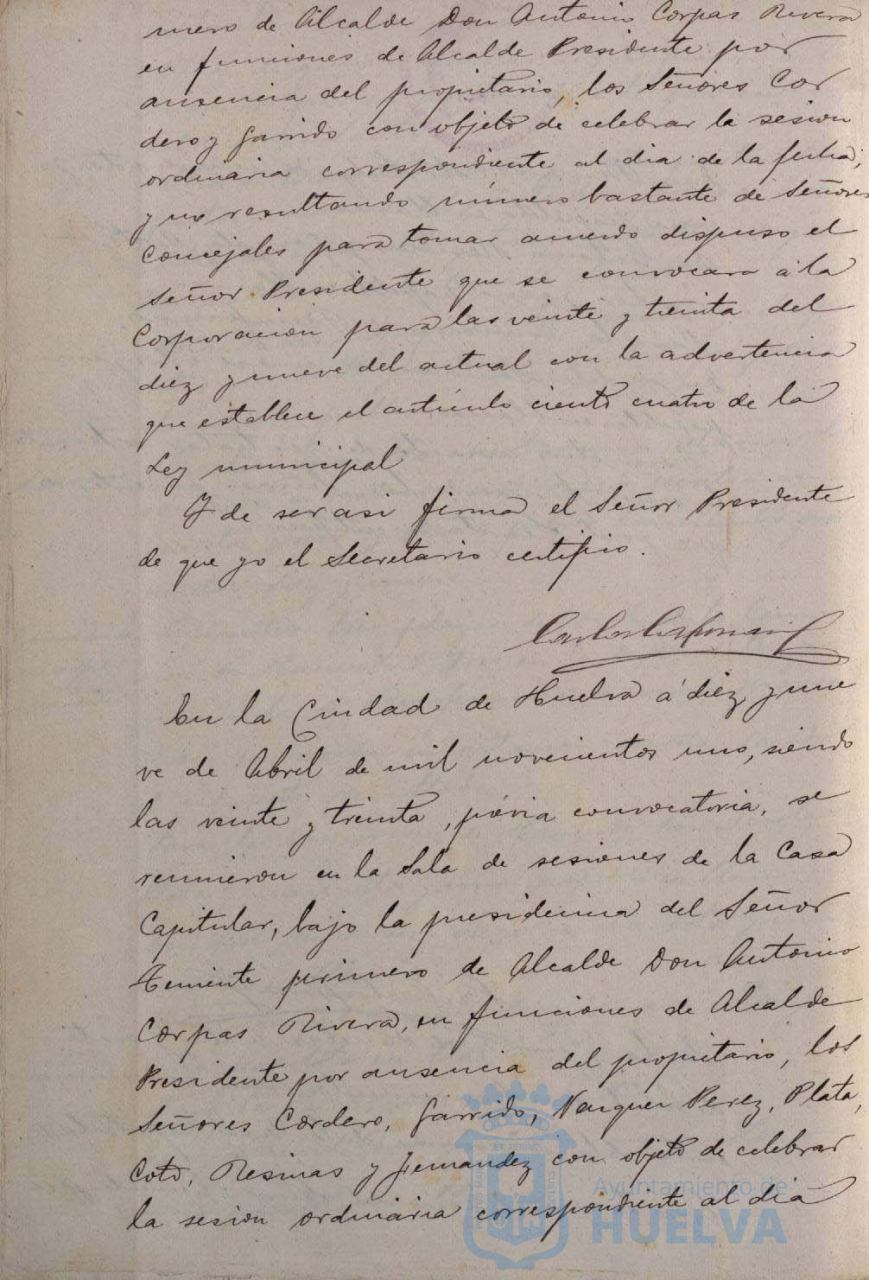 mero de Alcalde Don Antonio Corpas Rivera
en funciones de Alcalde Presidente por
ausencia del propietario, los Señores Cor
dero y Garrido con objeto de celebrar la sesion
ordinaria correspondiente al dia de la fecha,
y no resultando número bastante de Señores
Concejales para tomar acuerdo dispuso el
Señor Presidente que se convocara á la
Corporacion para las veinte y treinta del
diez y nueve del actual con la advertencia
que establece el artículo ciento cuatro de la
Ley municipal
Y de ser asi firma el Señor Presidente
de que yo el Secretario certifico.
En la Ciudad de Huelva á diez y nue
ve de Abril de mil novecientos uno, siendo
las veinte y treinta, prévia convocatoria, se
reunieron en la Sala de sesiones de la Casa
Capitular, bajo la presidencia del Señor
Teniente primero de Alcalde Don Antonio
Corpas Rivera, en funciones de Alcalde
Presidente por ausencia del propietario, los
Señores Cordero, Garrido, Vazquez Perez, Plata,
Coto, Resinas y Fernandez con objeto de celebrar
la sesion ordinaria correspondiente al dia
Ayuntamiento de
HUELVA